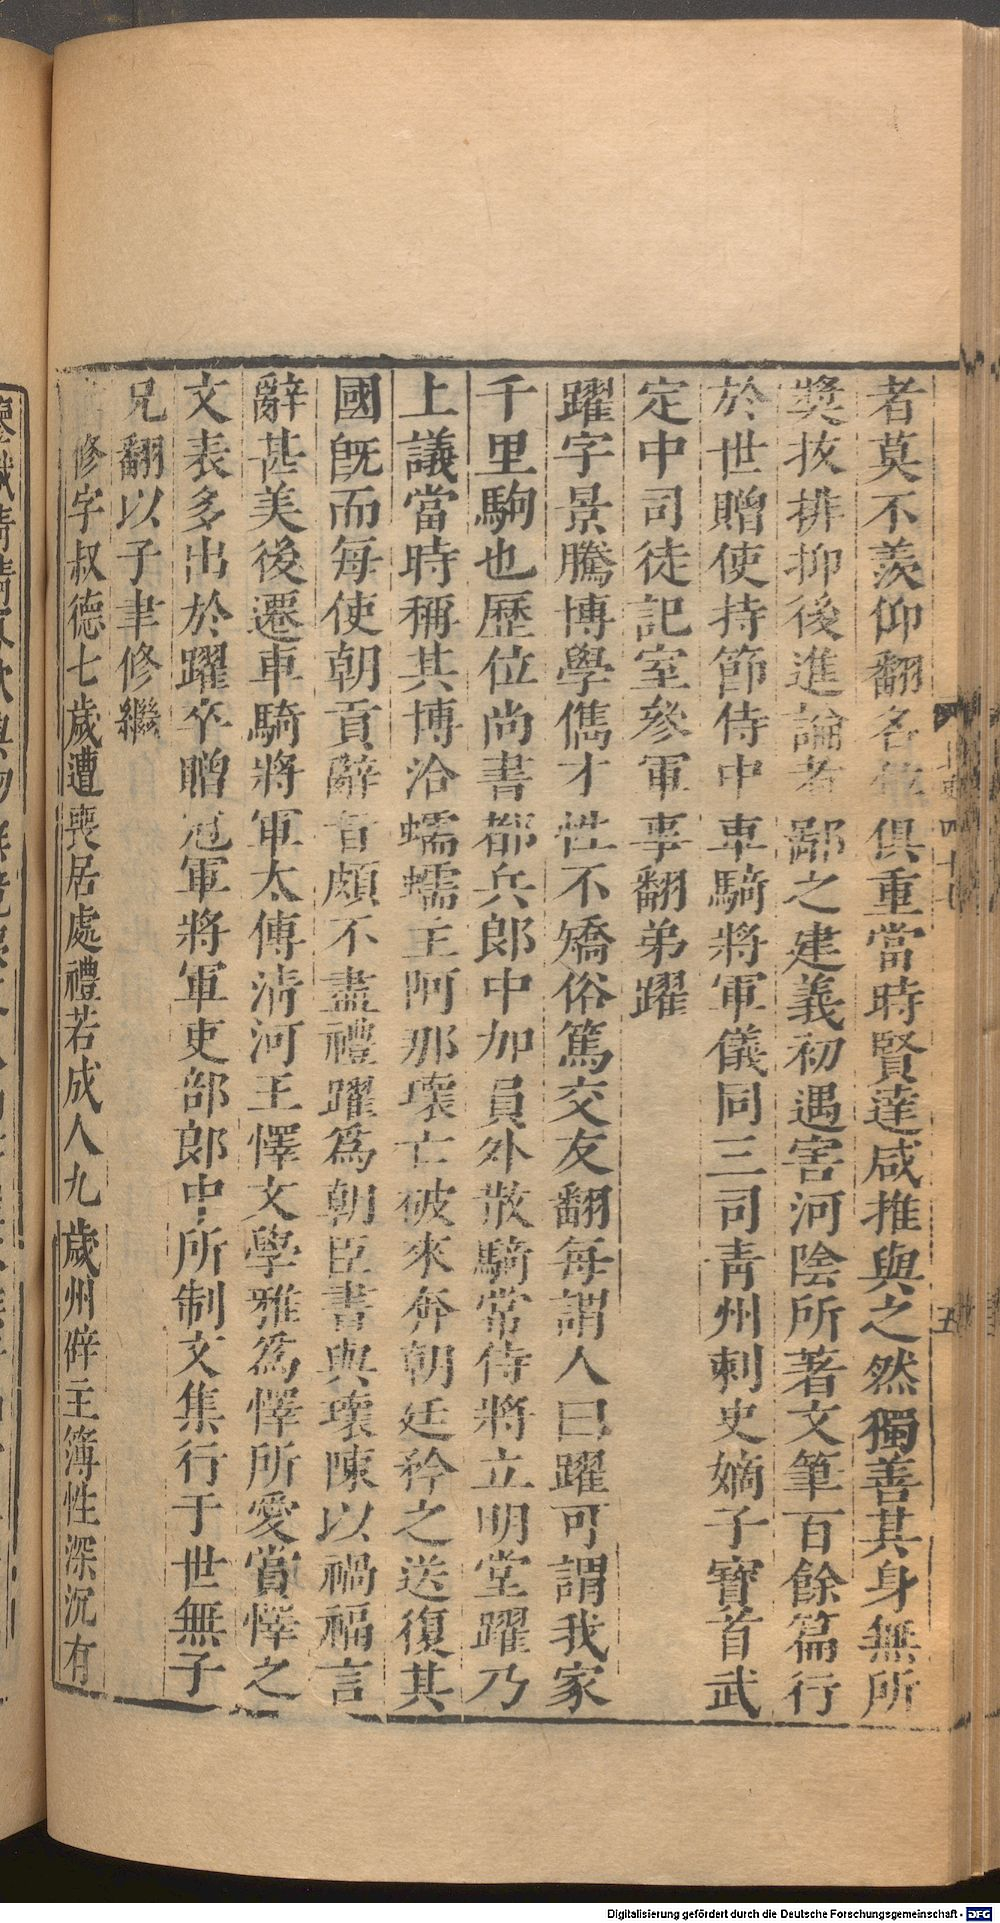 者莫不羨仰翻名位俱重當時賢達咸推與之然獨善其身無所
獎抜排抑後進論者鄙之建義初遇害河陰所著文筆百餘篇行
於世贈使持節侍中車騎將軍儀同三司青州刺史嫡子寶首武
定中司徒記室參軍事翻弟躍
躍字景騰博學儁才性不矯俗篤交友翻每謂人曰躍可謂我家
千里駒也歷位尚書都兵郎中加員外散騎常侍將立明堂躍乃
上議當時稱其博洽蠕蠕主阿那瓌亡破來奔朝廷矜之送復其
國旣而每使朝貢辭旨頗不盡禮躍爲朝臣書與瓌陳以禍福言
辭甚美後遷車騎將軍太傅淸河王懌文學雅爲懌所愛賞懌之
文表多出於躍卒贈冠軍將軍吏部郎中所制文集行于世無子
兄翻以子聿修繼
修字叔德七歲遭喪居處禮若成人九歲州辟主簿性深沉有
北史四十七
五
Digitalisierung gefördert durch die Deutsche Forschungsgemeinschaft - DFG